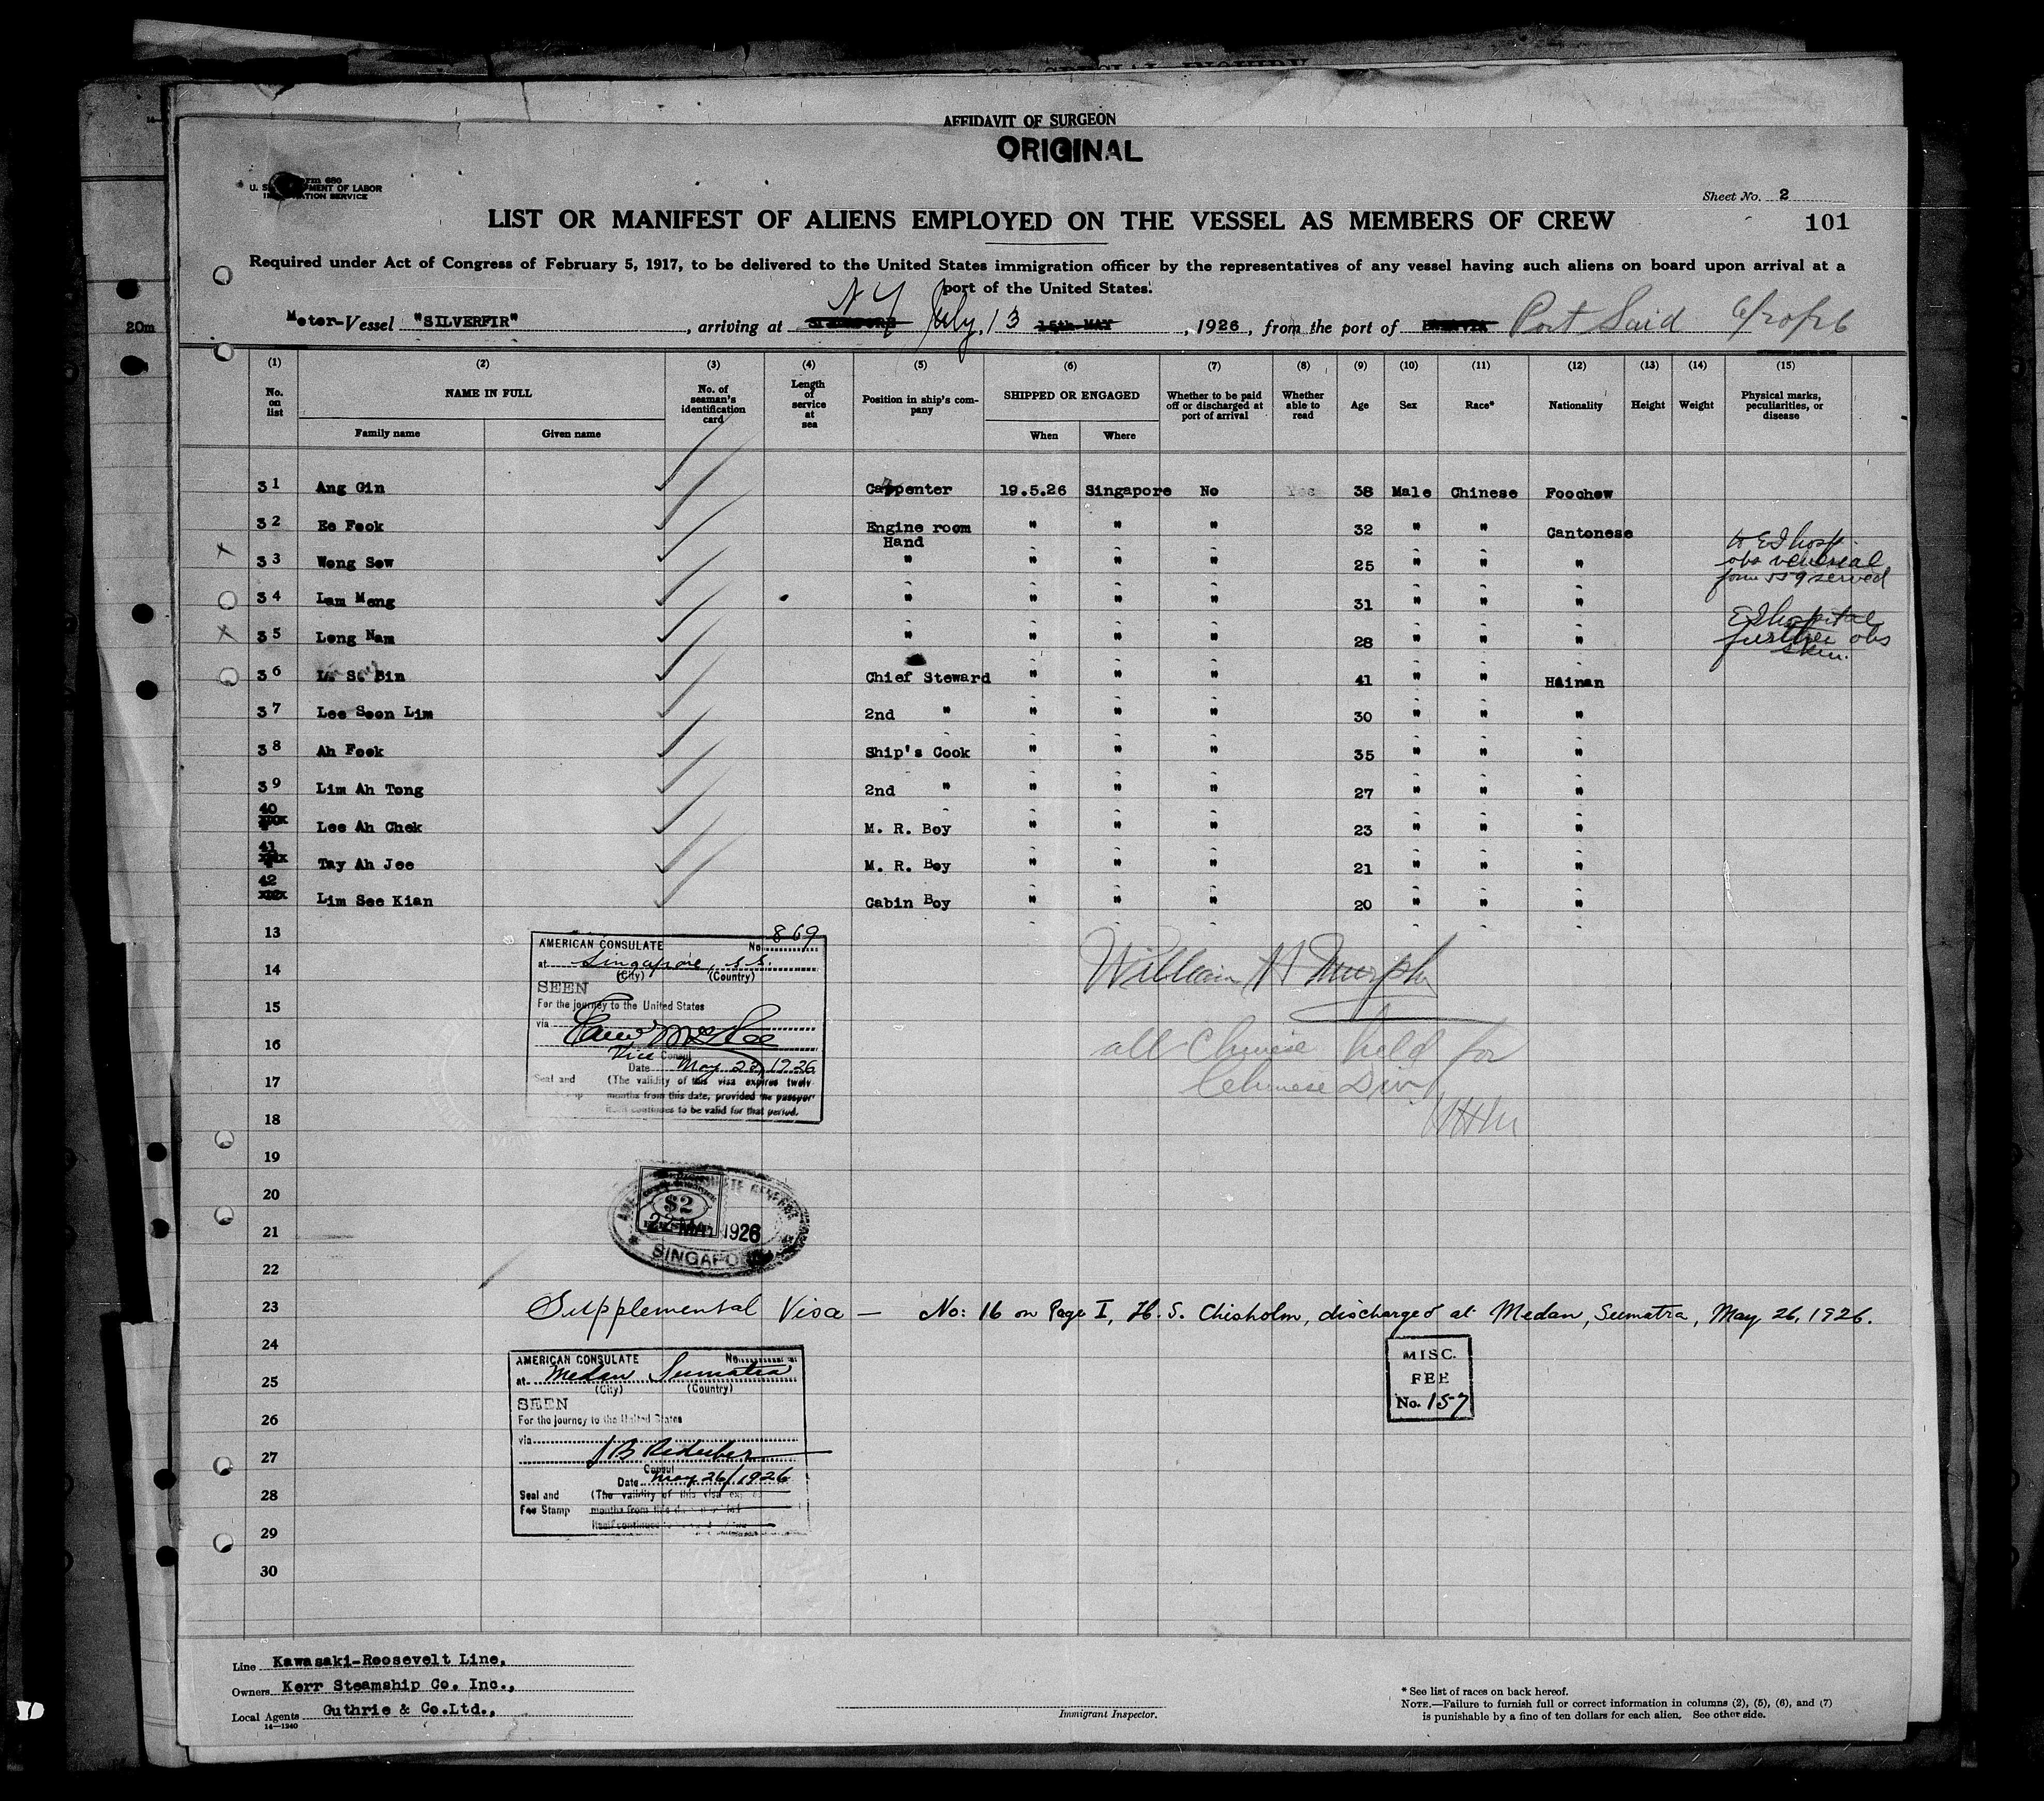 AFFIDAVIT OF SURGEON
ORIGINAL
Form 680
U. S. DEPARTMENT OF LABOR
IMMIGRATION SERVICE
Sheet No. 2
LIST OR MANIFEST OF ALIENS EMPLOYED ON THE VESSEL AS MEMBERS OF CREW
101
Required under Act of Congress of February 5, 1917, to be delivered to the United States immigration officer by the representatives of any vessel having such aliens on board upon arrival at a
port of the United States.
Moter-Vessel "SILVERFIR", arriving at SINGAPORE N Y July, 13 15th MAY, 1926, from the port of BATAVIA Port Said 6/20/26
20m
(1) (2) (3) (4) (5) (6) (7) (8) (9) (10) (11) (12) (13) (14) (15)
No. on list NAME IN FULL No. of seaman's identification card Length of service at sea Position in ship's company SHIPPED OR ENGAGED Whether to be paid off or discharged at port of arrival Whether able to read Age Sex Race* Nationality Height Weight Physical marks, peculiarities, or disease
Family name Given name When Where
31 Ang Gin Carpenter 19.5.26 Singapore No Yes 38 Male Chinese Foochow
32 Ee Fook Engine room Hand " " " 32 " " Cantonese
33 Wong Sow " " " " 25 " " " to E I hosp. obs venereal form 559 served
34 Lam Meng " " " " 31 " " "
35 Leng Nam " " " " 28 " " " E I hospital further obs skin.
36 L. S. Bin Chief Steward " " " 41 " " Hainan
37 Lee Soon Lim 2nd " " " " 30 " " "
38 Ah Fook Ship's Cook " " " 35 " " "
39 Lim Ah Tong 2nd " " " " 27 " " "
40 Lee Ah Chek M. R. Boy " " " 23 " " "
41 Tay Ah Jee M. R. Boy " " " 21 " " "
42 Lim See Kian Cabin Boy " " " 20 " " "
13
14
15
16
17
18
19
20
21
22
23
24
25
26
27
28
29
30
AMERICAN CONSULATE No. 869
at Singapore, S.S.
(City) (Country)
SEEN
For the journey to the United States
via
Vice Consul
Date May 22, 1926
Seal and (The validity of this visa expires twelve
months from this date, provided the passport
itself continues to be valid for that period.
William H Murphy
all Chinese held for
Chinese Div
WHM
$2
22 MAY 1926
SINGAPORE
Supplemental Visa — No: 16 on Page I, H. S. Chisholm, discharged at Medan, Sumatra, May 26, 1926.
AMERICAN CONSULATE No.
at Medan Sumatra
(City) (Country)
SEEN
For the journey to the United States
via
Consul
Date May 26/1926
Seal and (The validity of this visa
Fee Stamp months from this
itself continues
MISC.
FEE
No. 157
Line Kawasaki-Roosevelt Line,
Owners Kerr Steamship Co. Inc.,
Local Agents Guthrie & Co.Ltd.,
14—1240
Immigrant Inspector.
* See list of races on back hereof.
NOTE.—Failure to furnish full or correct information in columns (2), (5), (6), and (7)
is punishable by a fine of ten dollars for each alien. See other side.